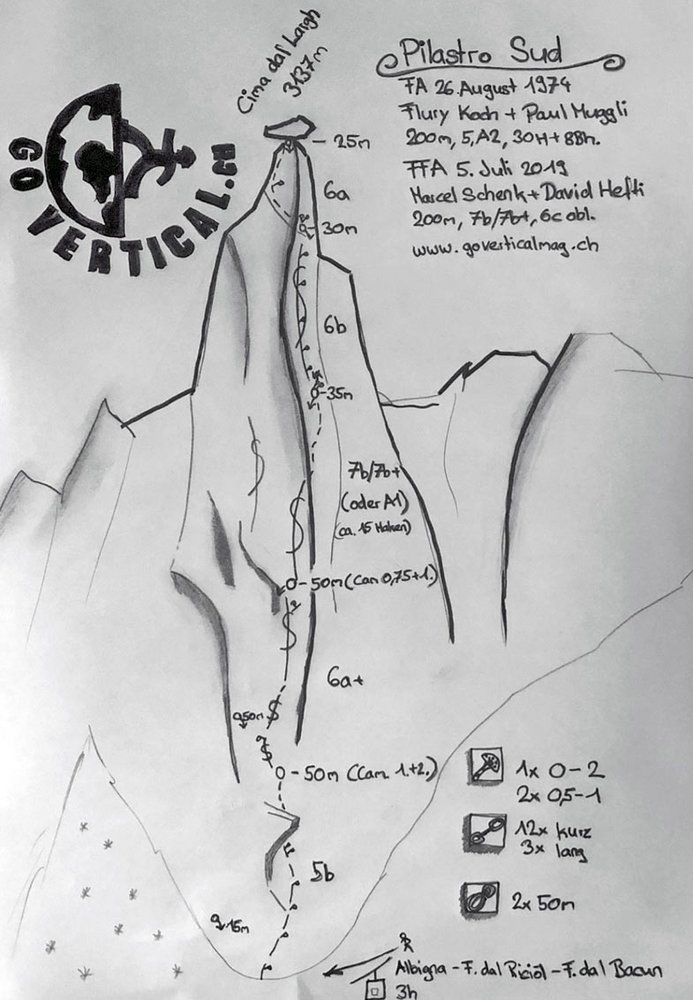 Cima dal Largh
3137m
Pilastro Sud
FA 26. August 1974
Flury Koch + Paul Muggli
200m, 5, A2, 30H + 8Bh.
FFA 5. Juli 2019
Marcel Schenk + David Hefti
200m, 7b/7b+, 6c obl.
www.goverticalmag.ch
GO VERTICAL.CH
25m
6a
30m
6b
35m
7b/7b+
(oder A1)
(ca. 15 Haken)
50m (Cam 0,75+1.)
6a+
50m
50m (Cam. 1.+2.)
1x 0-2
2x 0,5-1
12x kurz
3x lang
5b
2x 50m
15m
Albigna - F. dal Riciöl - F. dal Bacun
3h